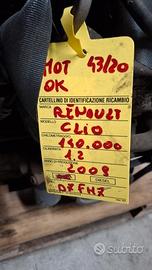 MOT 43/20
OK
CARTELLINO DI IDENTIFICAZIONE RICAMBIO
MARCA RENAULT
MODELLO CLIO
CHILOMETRAGGIO 190.000
CILINDRATA 1.2
ANNO DI PRODUZIONE 2009
DIESEL
D7FH7
subito